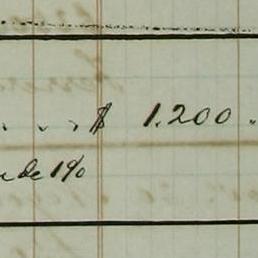 $ 1.200
de 1%